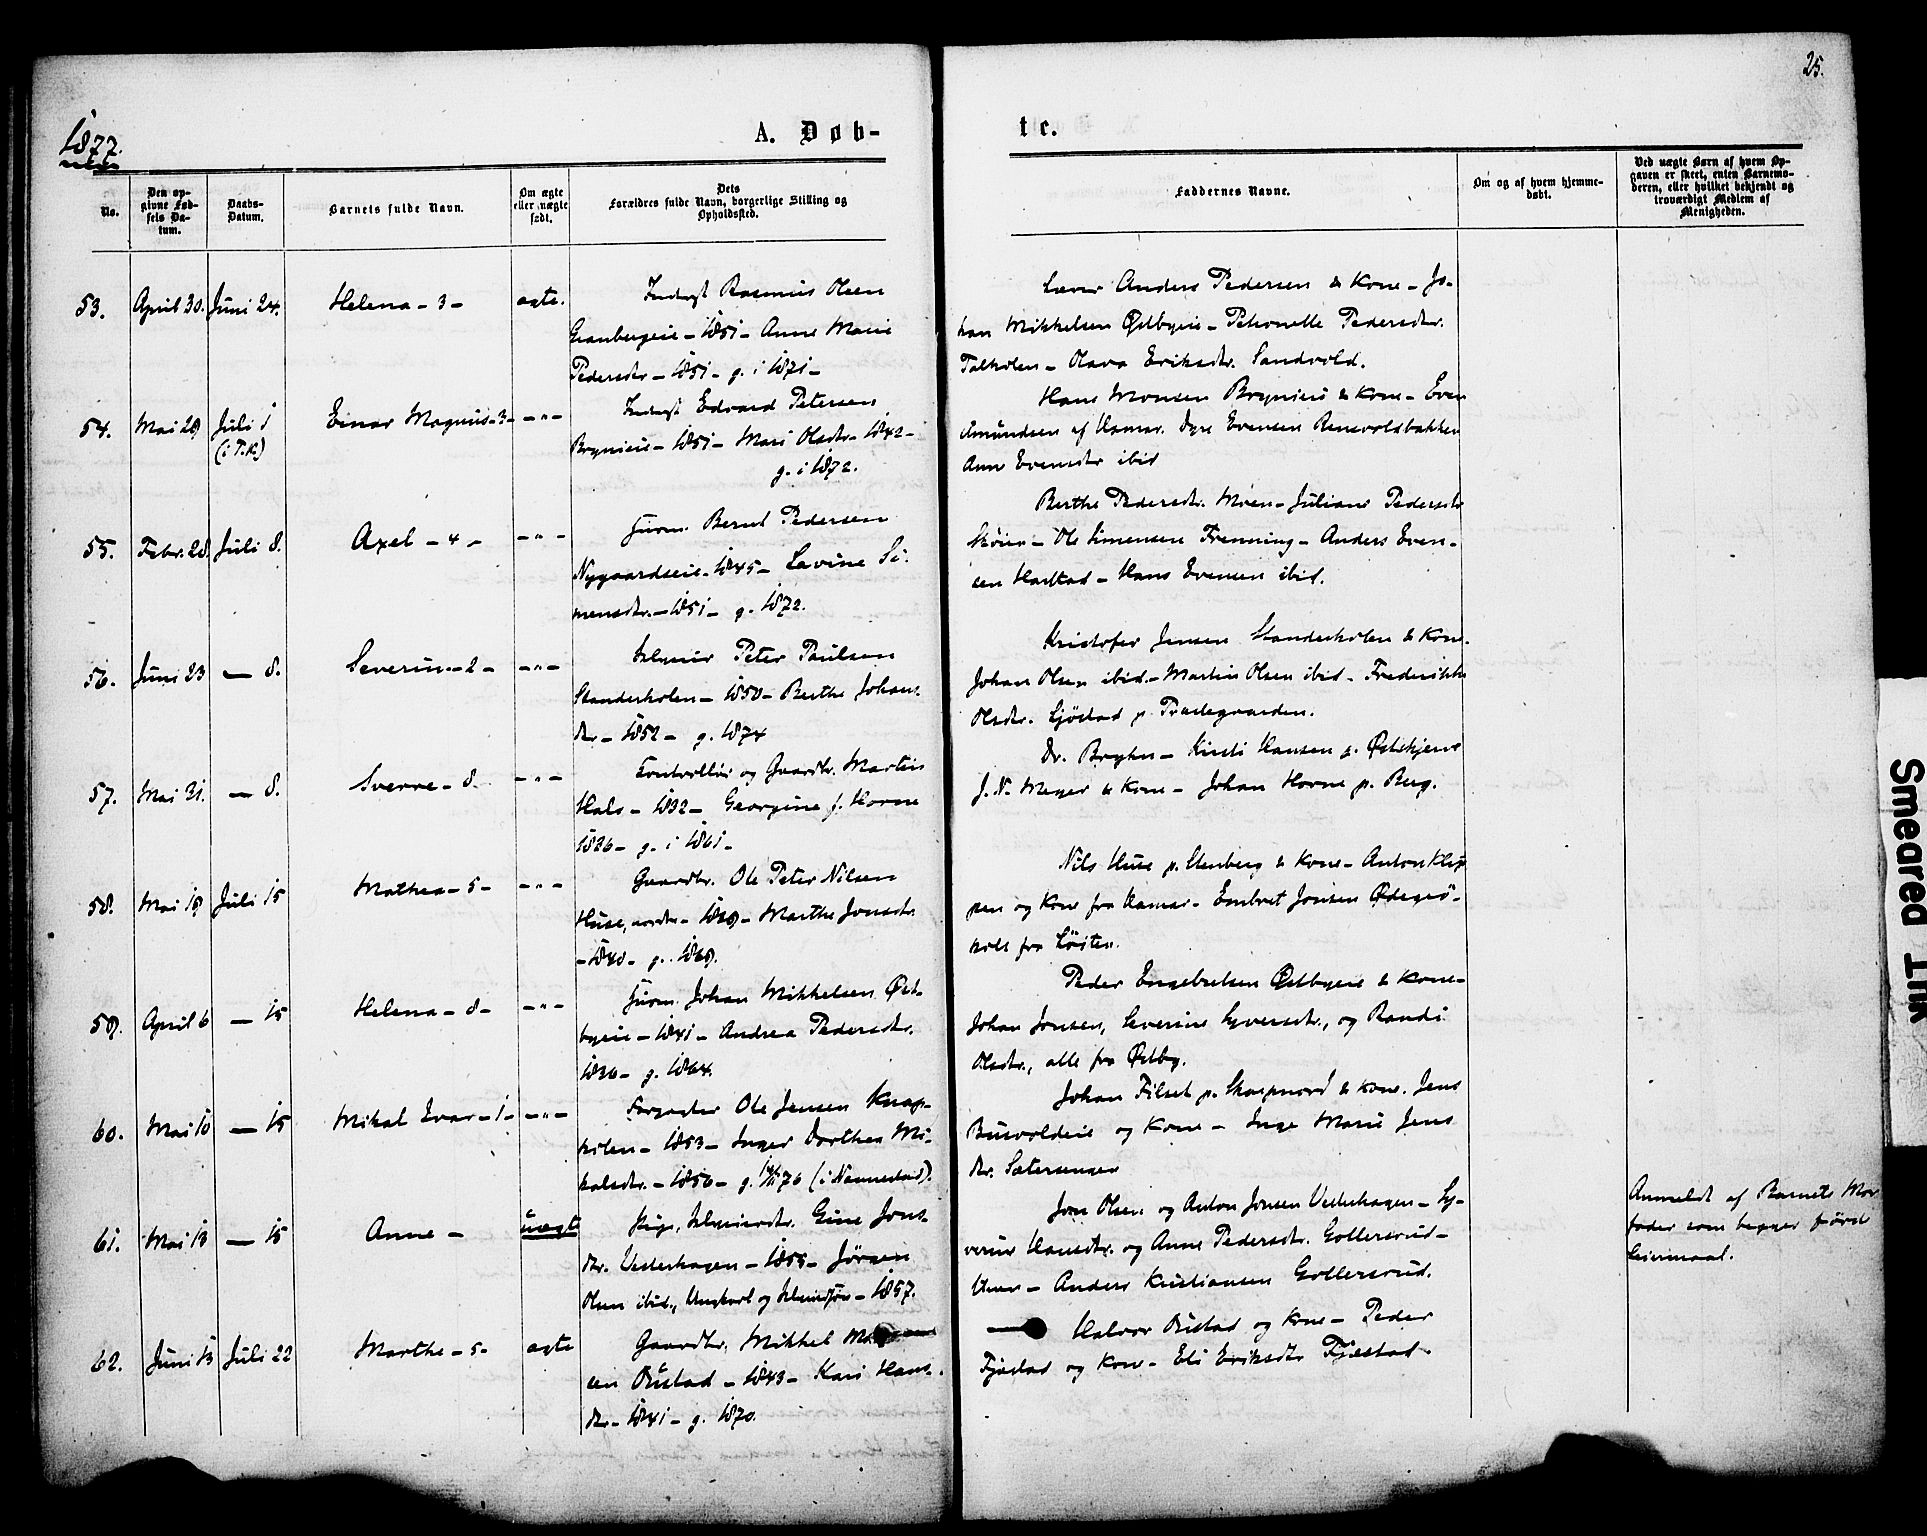 25.
1877.
A. Døb-
te.
No.
Den op-
givne Fød-
sels Da-
tum.
Daabs-
Datum.
Barnets fulde Navn.
Om ægte
eller uægte
født.
Dets
Forældres fulde Navn, borgerlige Stilling og
Opholdssted.
Faddernes Navne.
Om og af hvem hjemme-
døbt.
Ved uægte Børn af hvem Op-
gaven er skeet, enten Barnemo-
deren, eller hvilket bekjendt og
troværdigt Medlem af
Menigheden.
53. April 30. Juni 24. Helena - 3 - ægte.
Inderst Rasmus Olsen
Granbergeie - 1851 - Anne Marie
Pedersdtr - 1851 - g. i 1871 -
Anders Pedersen & Kone - Jo-
han Mikkelsen Østbyeie - Petronelle Pedersdtr.
- Olava Eriksdtr. Sandvold.
54. Mai 29 Juli 1 Einar Magnus - 3 - - " -
(i T.K.)
Inderst Edvard Petersen
Brynieie - 1851 - Mari Olsdtr - 1842 -
g. i 1872.
Hans Monsen Brynieie & Kone - Even
Amundsen af Hamar. Evensen
Anne Evensdtr ibid
55. Febr. 28 Juli 8. Axel - 4 - - " -
Husm. Bernt Pedersen
Nygaardseie - 1845 - Lavine Si-
mensdtr. - 1851 - g. 1872.
Berthe Pedersdtr. Moen - Juliane Pedersdtr
Skøien - Ole Simensen Frenning - Anders Even-
sen Harstad - Hans Evensen ibid.
56. Juni 23 - 8. Severin - 2 - - " -
Peter Paulsen
Standerholen - 1850 - Berthe Johans-
dtr - 1852 - g. 1874
Kristofer Jensen Standerholen & Kone -
Johan Olsen ibid. - Martin Olsen ibid - Frederikke
Olsdtr. Sjøstad p. Præstegaarden.
57. Mai 31. - 8. Sverre - 8. - " -
Controllør og Gaardbr. Martin
Hals - 1832 - Georgine f. Horne
1836 - g. i 1861 -
Dr. Bryhn - Kirsti Hansen p. Østskjene
J. N. Meyer & Kone - Johan Horne p. Berg.
58. Mai 19 Juli 15 Mathea - 5 - - " -
Gaardbr. Ole Peter Nilsen
Huse, nordre - 1839 - Marthe Jonsdtr.
- 1840 - g. 1869.
Nils Huse p. Stenberg & Kone - Anton Klip
pen og Kone fra Hamar - Embret Jonsen Ødegrø-
fra Løiten.
59. April 6 - 15 Helena - 8 - - " -
Husm. Johan Mikkelsen Øst-
byeie - 1841 - Andrea Pedersdtr.
1836 - g. 1864.
Peder Engebretsen Østbyeie & Kone -
Johan Jonsen, Severine Syversdtr., og Randi
Olsdtr., alle fra Østby.
60. Mai 10 - 15 Mikal Ivar - 1 - - " -
Forpagter Ole Jensen Knap-
holen - 1853 - Inger Dorthea Mi-
kalsdtr. - 1856 - g. 76 (i Nannestad).
Johan Filset p. Skarpnord & Kone. Jens
Busvoldeie og Kone - Inge Marie Jens
dtr. Sætersengen
61. Mai 13 - 15 Anne - uægte
Pige, Gine Jons-
dtr. Vesterhagen - 1855 - Jørgen
Olsen ibid., Ungkarl og - 1857.
Jon Olsen og Anton Jonsen Vesterhagen - Sy-
verine Hansdtr. og Anne Pedersdtr. Gollersrud -
- Anders Kristiansen Gollersrud.
Anmeldt af Barnets Mor
fader som begges første
Leiermaal.
62. Juni 13 Juli 22 Marthe - 5 - ægte
Gaardbr. Mikkel
sen Oustad - 1843 - Kari Hans-
dtr - 1841 - g. 1870.
Halvor Oustad og Kone - Peder
Fjæstad og Kone - Eli Eriksdtr Fjæstad -
Smeared Ink